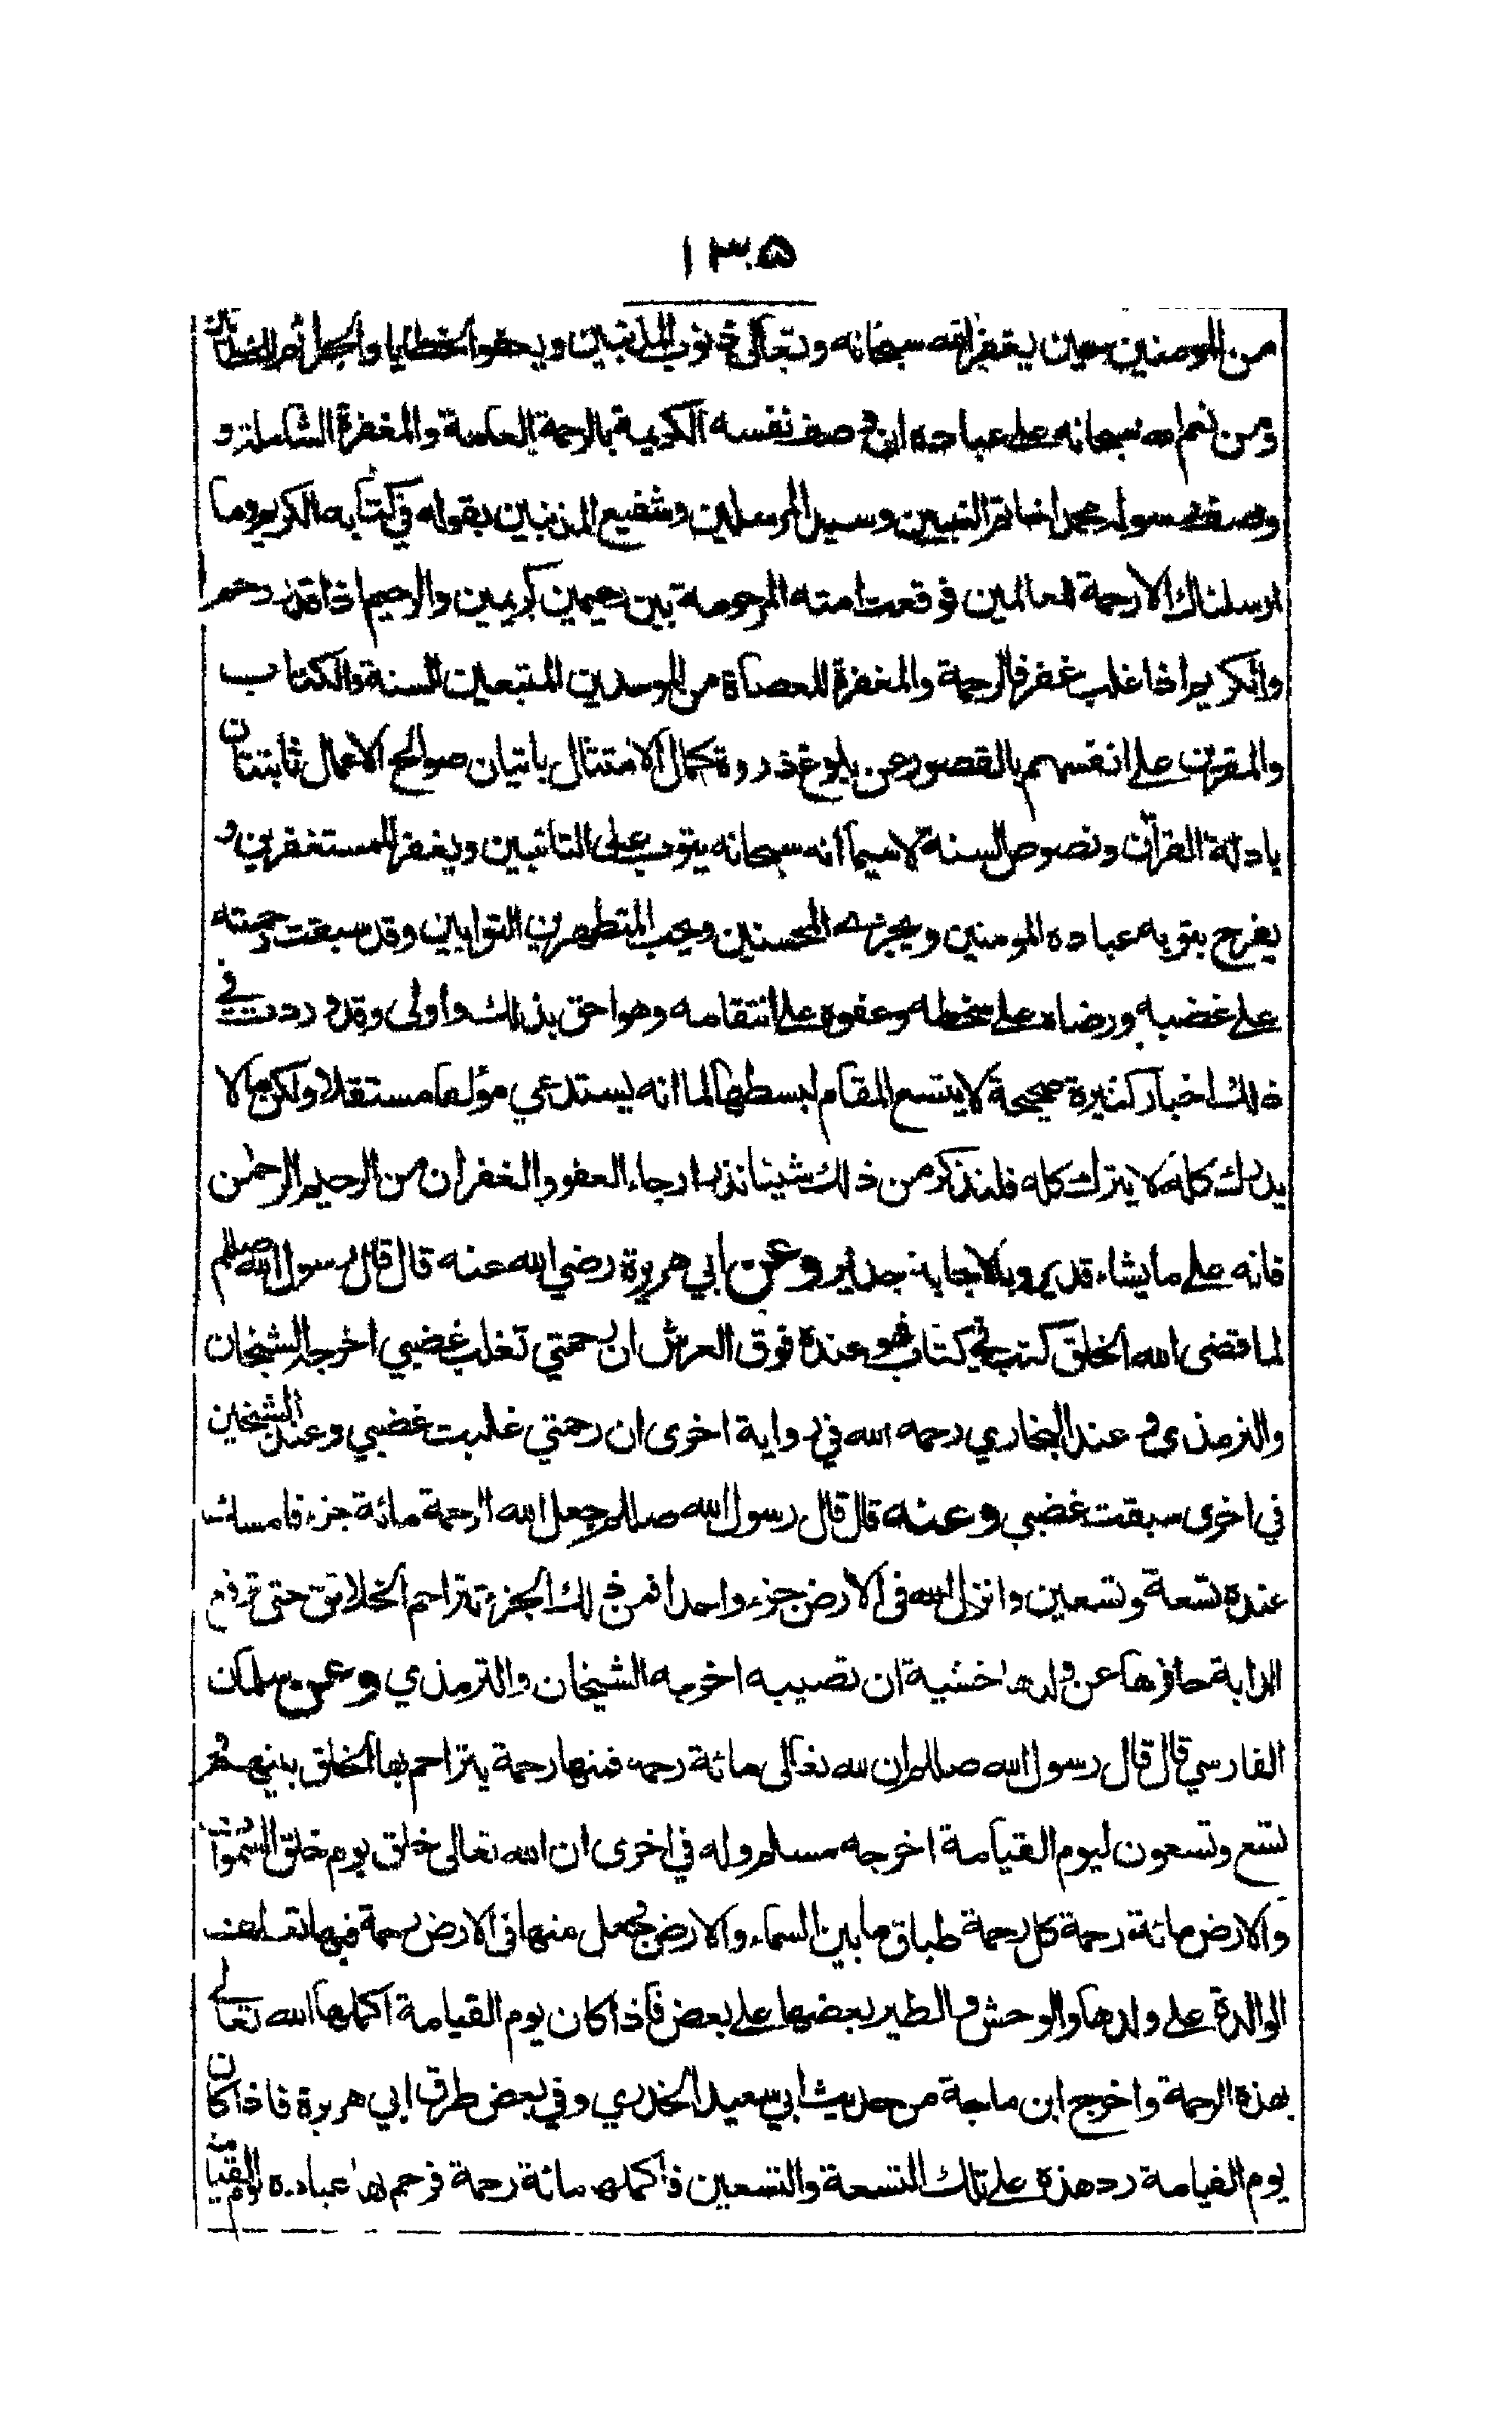 ١٣٥
من المومنين حين يغفر الله سبحانه وتعالى ذنوب المذنبين ويعفو الخطايا والجرائم
ومن نعم الله سبحانه على عباده ان وصف نفسه الكريمة بالرحمة العامة والمغفرة الشاملة و
وصف رسوله محمدا خاتم النبيين وسيد المرسلين وشفيع المذنبين بقوله في كتابه الكريم وما
ارسلناك الا رحمة للعالمين فوقعت امته المرحومة بين رحيمين كريمين والرحيم اذا قدر رحم
والكريم اذا غلب غفر فالرحمة والمغفرة للعصاة من الموحدين المتبعين للسنة والكتاب
والمقرين على انفسهم بالقصور عن بلوغ ذروة كمال الامتثال باتيان صوالح الاعمال ثابتتان
بادلة القرآن ونصوص السنة لاسيما انه سبحانه يتوب على التائبين ويغفر للمستغفرين و
يفرح بتوبة عباده المومنين ويجزي المحسنين ويحب المتطهرين التوابين وقد سبقت رحمته
على غضبه ورضاه على سخطه وعفوه على انتقامه وهو احق بذلك واولى وقد وردت في
ذلك اخبار كثيرة صحيحة لا يتسع المقام لبسطها لما انه يستدعي مؤلفا مستقلا ولكن ما لا
يدرك كله لا يترك كله فلنذكر من ذلك شيئا نذرا رجاء العفو والغفران من الرحيم الرحمن
فانه على ما يشاء قدير وبالاجابة جدير وعن ابي هريرة رضي الله عنه قال قال رسول الله صللم
لما قضى الله الخلق كتب في كتاب فهو عنده فوق العرش ان رحمتي تغلب غضبي اخرجه الشيخان
والترمذي و عند البخاري رحمه الله في رواية اخرى ان رحمتي غلبت غضبي وعند الشيخين
في اخرى سبقت غضبي وعنه قال قال رسول الله صللم جعل الله الرحمة مائة جزء فامسك
عنده تسعة وتسعين وانزل الله في الارض جزء واحدا فمن ذلك الجزء تتراحم الخلائق حتى ترفع
الدابة حافرها عن ولدها خشية ان تصيبه اخرجه الشيخان والترمذي وعن سلمان
الفارسي قال قال رسول الله صللم ان لله تعالى مائة رحمة فمنها رحمة يتراحم بها الخلق بينهم و
تسع وتسعون ليوم القيامة اخرجه مسلم وله في اخرى ان الله تعالى خلق يوم خلق السموات
والارض مائة رحمة كل رحمة طباق ما بين السماء والارض فجعل منها في الارض رحمة فبها تعطف
الوالدة على ولدها والوحش والطير بعضها على بعض فاذا كان يوم القيامة اكملها الله تعالى
بهذه الرحمة واخرج ابن ماجة من حديث ابي سعيد الخدري وفي بعض طرق ابي هريرة فاذا كان
يوم القيامة رد هذه على تلك التسعة والتسعين فاكملها مائة رحمة فرحم بها عباده يوم القيامة